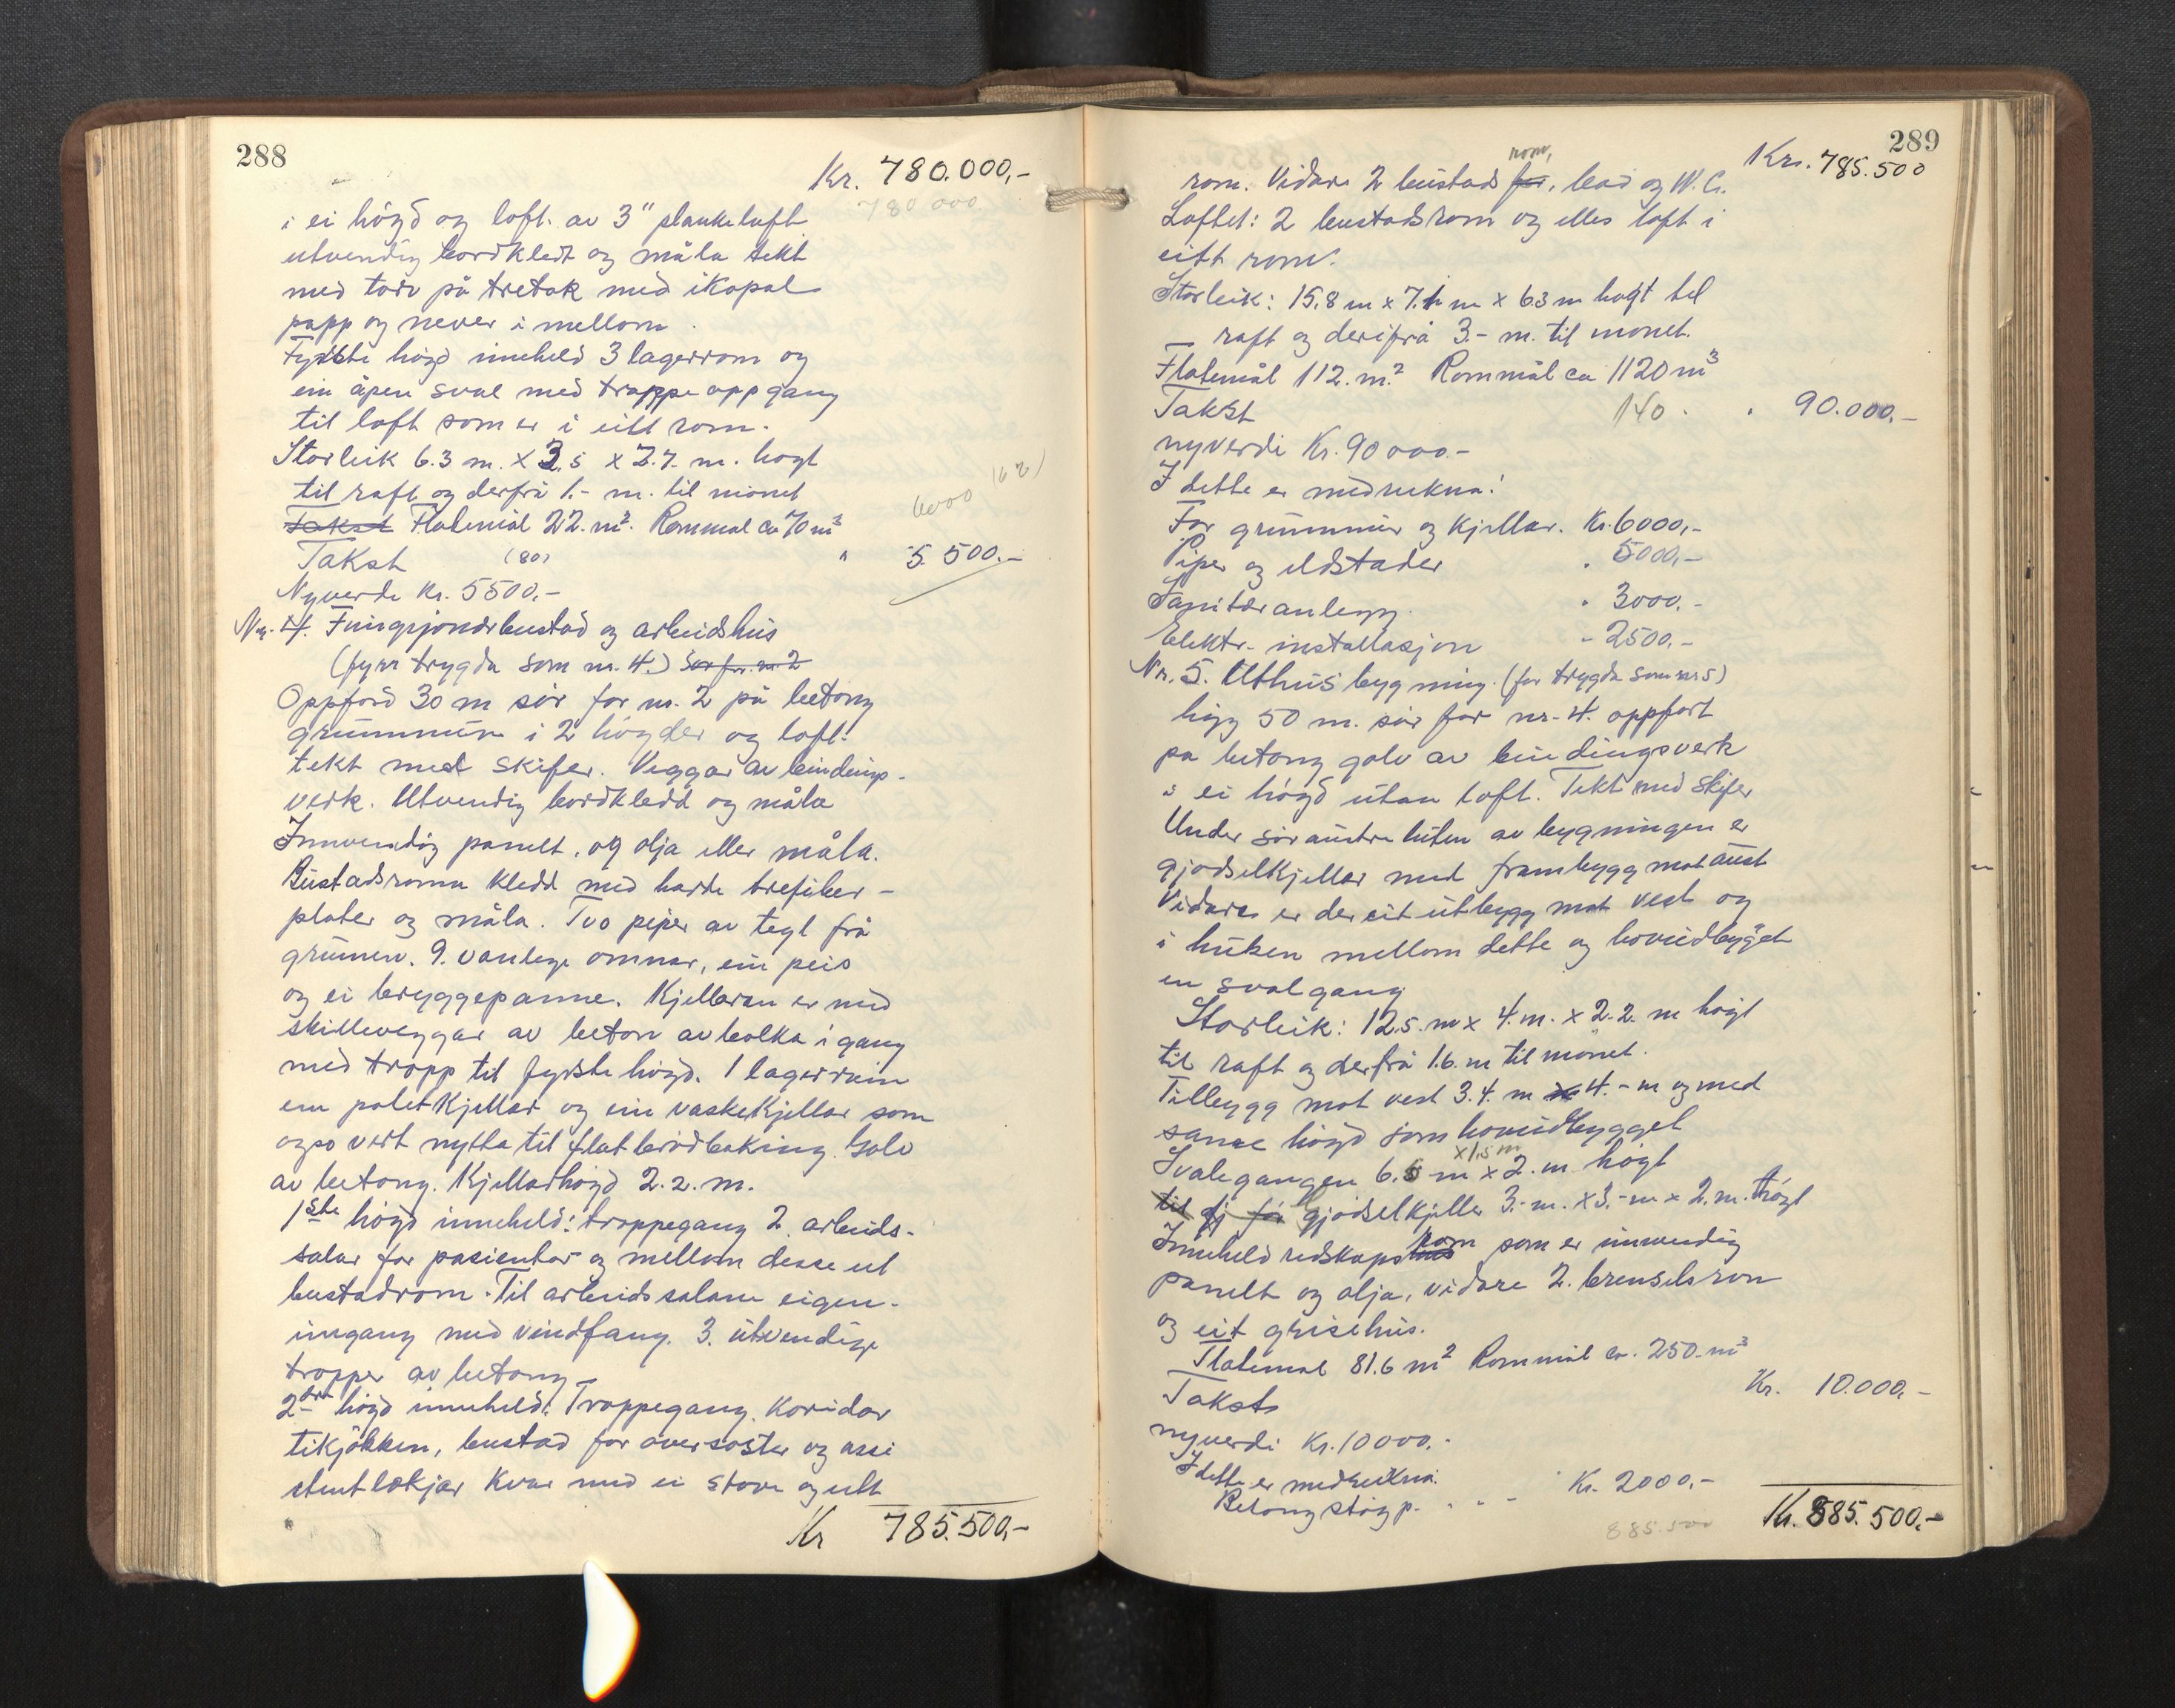 288
Kr. 780.000,-
780 000
i ei högd og loft. av 3" plankeloft
utvendig bordkledt og måla tekt
med torv på tretak med ikopal
papp og never i mellom.
Fyrste högd inneheld 3 lagerrom og
ein åpen sval med trappe oppgang
til loft som er i eitt rom.
Storleik 6.3 m. x 3.5 x 2.7. m. hogt
til raft og derfrå 1.- m. til mönet
6000
Takst Flatemål 22. m². Rommål ca 70 m³
Takst (80) " 5.500.-
Nyverde Kr. 5500,-
Nr. 4. Fungsjonærbustad og arbeidshus
(fyrr trygda som nr. 4.) Sør for nr. 2
Oppförd 30 m sör for nr. 2 på betong
grunnmur i 2 högder og loft.
tekt med skifer. Veggar av bindings-
verk. Utvendig bordkledd og måla
Innvendig panelt, og olja eller måla.
Bustadsroma kledd med harde trefiber-
plater og måla. Tvo piper av tegl frå
grunnen. 9. vanlege omnar, ein peis
og ei bryggepanne. Kjellaren er med
skilleveggar av beton avbolka i gang
med tropp til fyrste högd. 1 lagerrum
em potetkjellar og ein vaskekjellar som
ogso vert nytta til flatbrödbaking. Golv
av betong. Kjellarhögd 2.2. m.
1ste högd inneheld: troppegang 2. arbeids-
salar for pasientar og mellom desse eit
bustadrom. Til arbeidssalane eigen-
inngang med vindfang. 3. utvendige
tropper av betong
2dre högd inneheld: Troppegang. Koridor
tekjökken, bustad for oversöster og assi
stentlækjar kvar med ei stove og eitt
Kr 785.500,-
289
Kr. 785.500
rom,
rom. Vidare 2 bustads for, bad og W.C.
Loftet: 2 bustadsrom og elles loft i
eitt rom.
Storleik: 15,8 m x 7.1 m x 6.3 m hogt til
raft og derifrå 3.- m. til mönet.
Flatemål 112. m.² Rommål ca 1120 m³
Takst 140. " 90.000,-
nyverdi Kr. 90 000.-
I dette er medrekna:
For grunnmur og Kjellar. Kr. 6000,-
Piper og eldstader " 5000,-
Sanitæranlegg. " 3000,-
Elektr. installasjon - 2500,-
Nr. 5. Uthusbygning. (för trygda som nr 5)
ligg 50 m. sör for nr. 4. oppfört
på betong golv av bindingsverk
i ei högd utan loft. Tekt med skifer
Under söraustre luten av bygningen er
gjödselkjellar med frambygg mot aust
Vidare er der eit utbygg mot vest og
i huken mellom dette og hovudbygget
en svalgang
Storleik: 12.5. m x 4. m. x 2.2. m högt
til raft og derfrå 1.6. m til mönet.
Tilbygg mot vest 3.4. m x 4.- m og med
same högd som hovudbygget
x 1.5 m
Svalegangen 6.5 m x 2. m. högt
til gj for gjödselkjeller 3.- m. x 3.- m x 2. m. högt
rom
Inneheld redskapshus som er innvendig
panelt og olja, vidare 2. brenselsrom
og eit grisehus.
Flatemål 81.6 m² Rommål ca. 250. m³
Takst Kr. 10.000,-
nyverdi Kr. 10 000,-
I dette er medrekna:
Betongstöyp. . . - Kr. 2000,-
885.500
Kr. 885.500,-